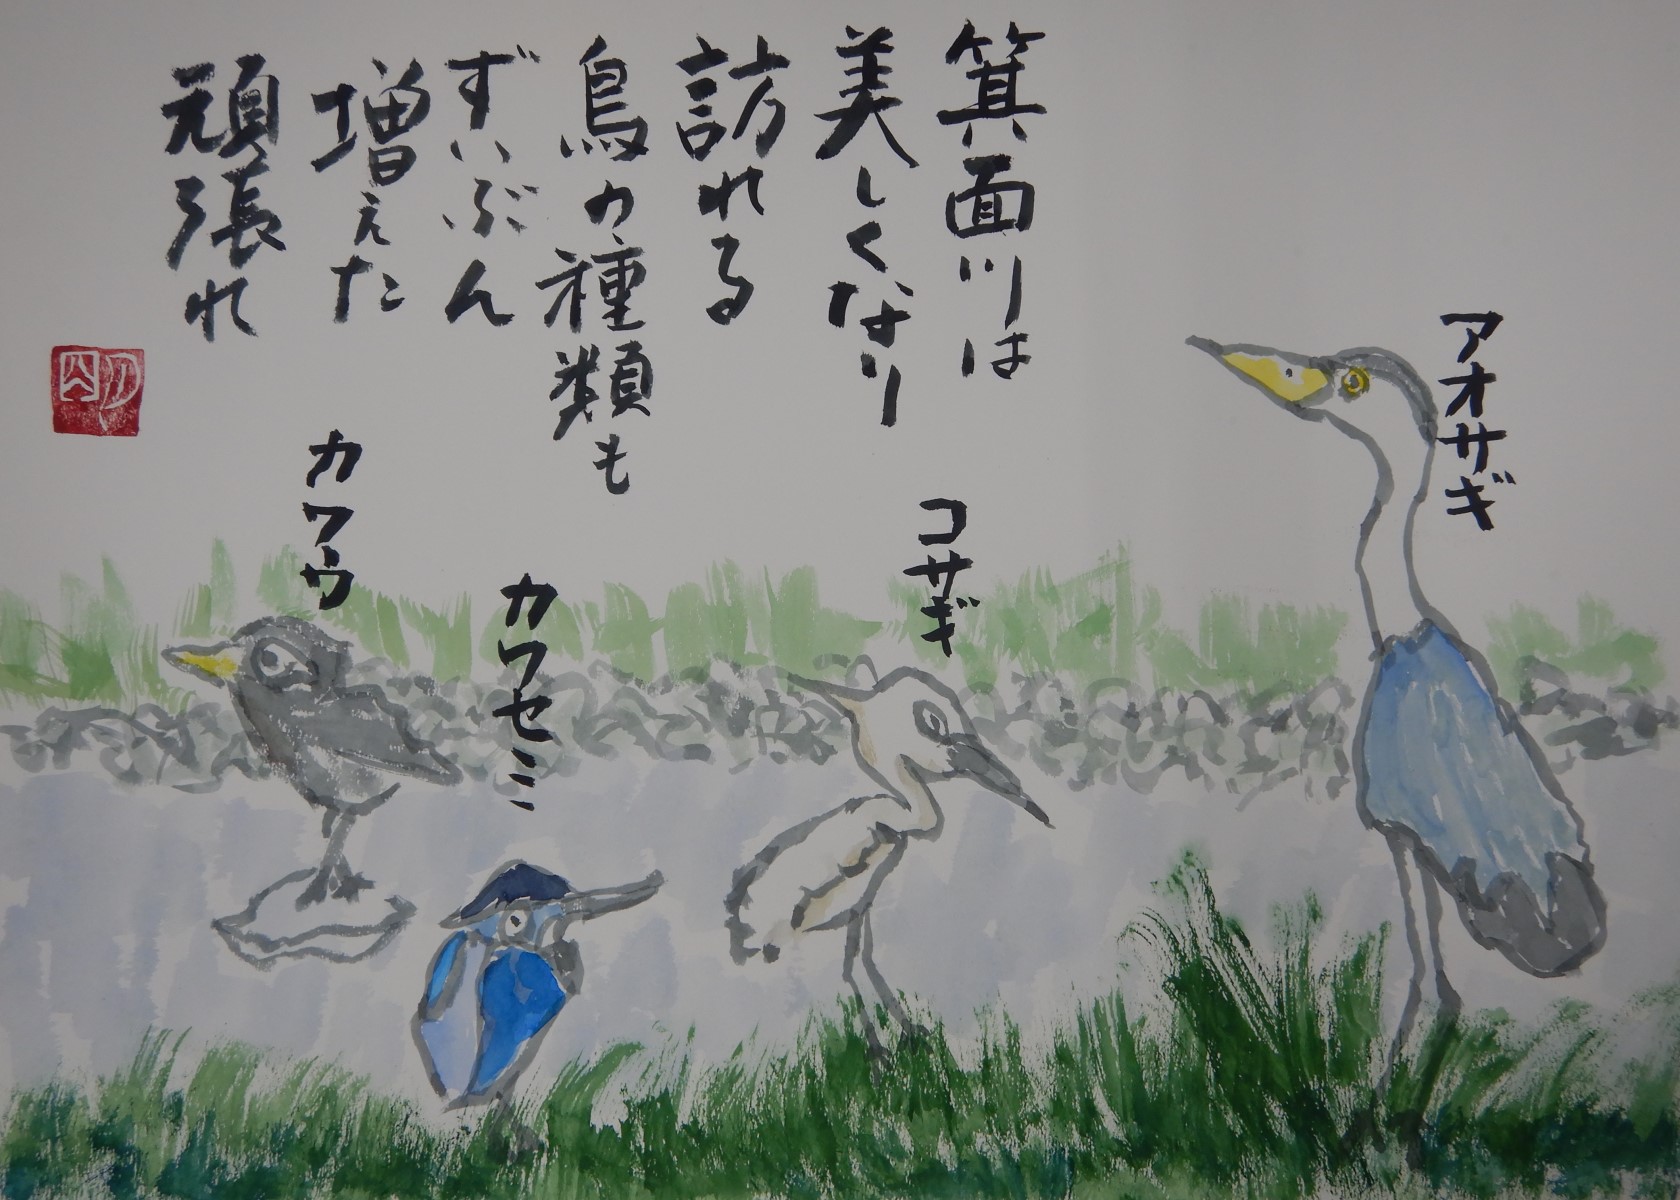 箕面川は
美しくなり
訪れる
鳥の種類も
ずいぶん
増えた
頑張れ
アオサギ
コサギ
カワセミ
カワウ